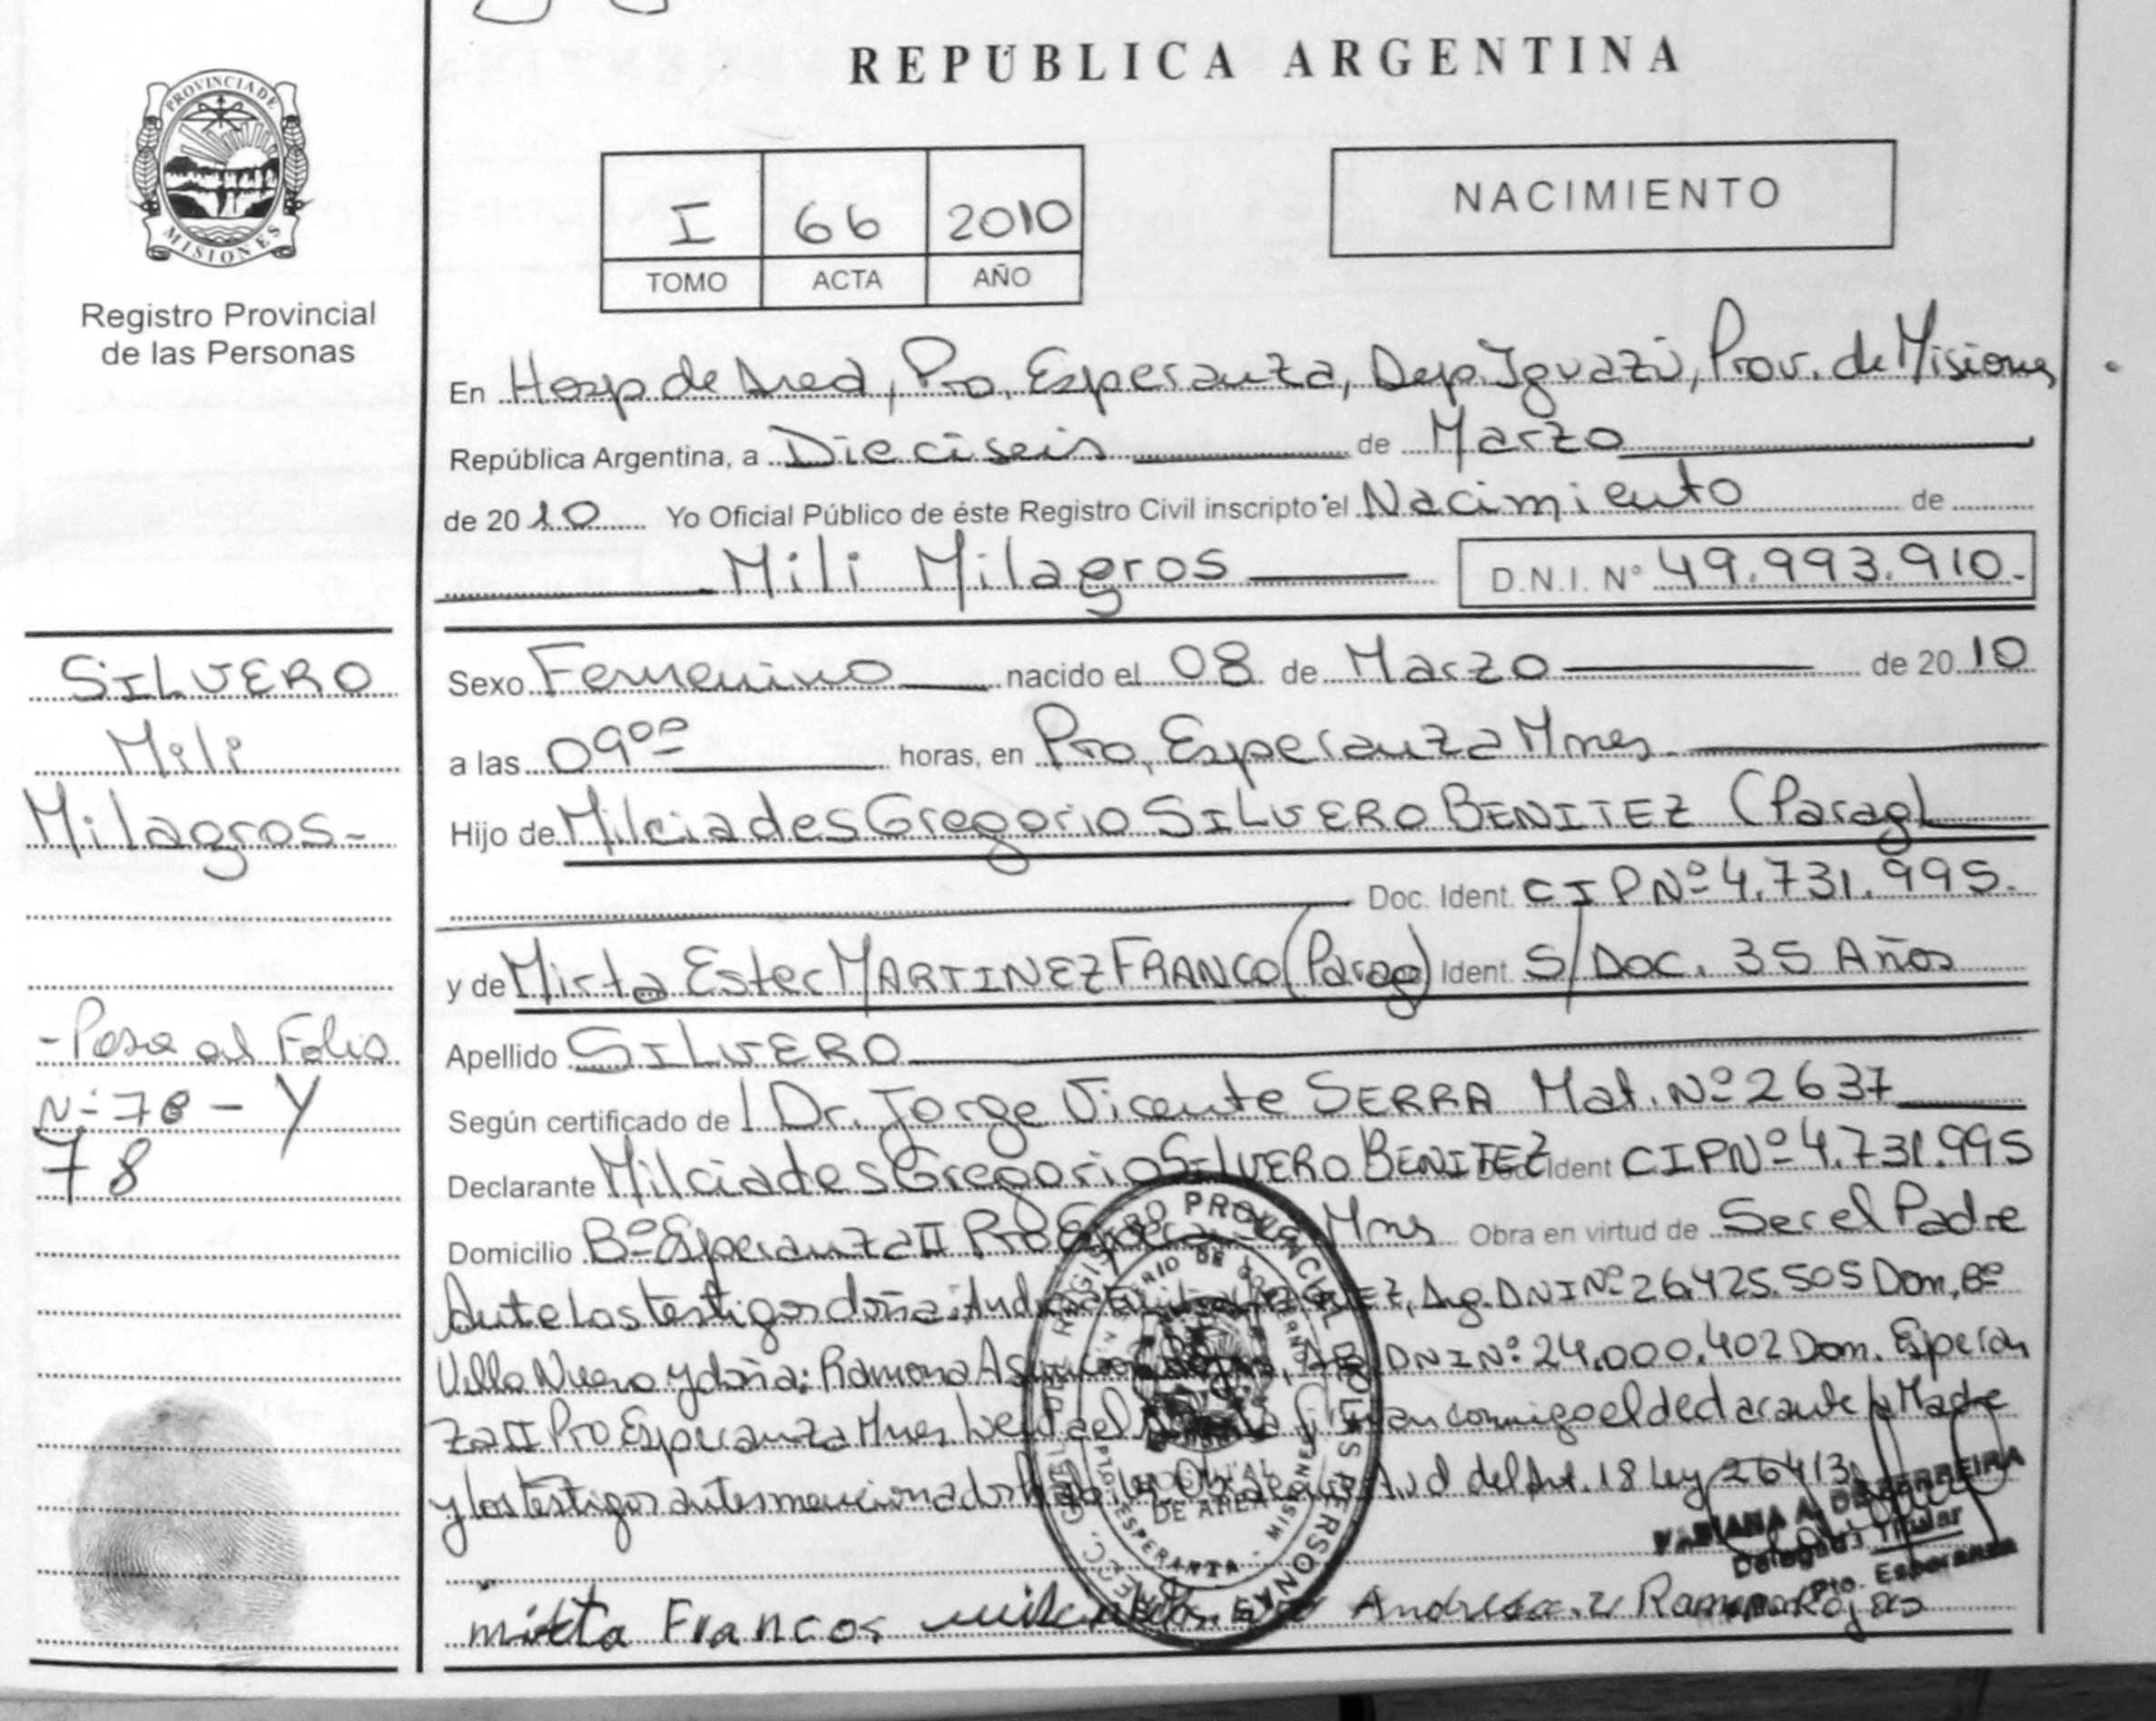 REPÚBLICA ARGENTINA
PROVINCIA DE
MISIONES
Registro Provincial
de las Personas
I 66 2010
TOMO ACTA AÑO
NACIMIENTO
En Hosp de Area, Pto, Esperanza, Dep. Iguazú, Prov. de Misiones
República Argentina, a Dieciseis de Marzo
de 2010 Yo Oficial Público de éste Registro Civil inscripto el Nacimiento de
Mili Milagros D.N.I. Nº 49.993.910.-
SILVERO
Mili
Milagros-
-Pasa al Folio
Nº 78 - Y
78
Sexo Femenino nacido el 08 de Marzo de 2010
a las 09⁰⁰ horas, en Pto, Esperanza Mnes
Hijo de Milciades Gregorio SILVERO BENITEZ (Parag)
Doc. Ident. CIP Nº 4.731.995.
y de Mirta Ester MARTINEZ FRANCO (Parag) Ident. S/Doc. 35 Años
Apellido SILVERO
Según certificado de Dr. Jorge Vicente SERRA Mat. Nº 2637
Declarante Milciades Gregorio SILVERO BENITEZ Doc. Ident CIP Nº 4.731.995
Domicilio Bº Esperanza II Pto Mns Obra en virtud de Ser el Padre
Ante los testigos doña: Arg. DNI Nº 26.425.505 Dom, Bº
Villa Nueva y doña: Ramona DNI Nº: 24.000.402 Dom. Esperan
za II Pto Esperanza Mnes Leida el Acta firman conmigo el declarante la Madre
y los testigos antes mencionados del Art. 18 Ley 26413
REGISTRO PROVINCIAL DE LAS PERSONAS
DE AREA
PTO. ESPERANZA - MISIONES
FABIANA A. DE FERREIRA
Delegada Titular
Pto. Esperanza
mirta Francos Andresa Ramona Rojas